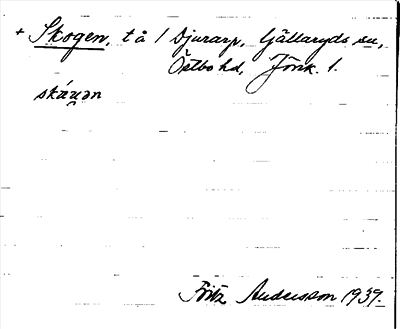 + Skogen, t å 1 Djurarp, Gällaryds sn,
Östbo hd, Jönk. l.
skáu̯ən
Fritz Andersson 1939.